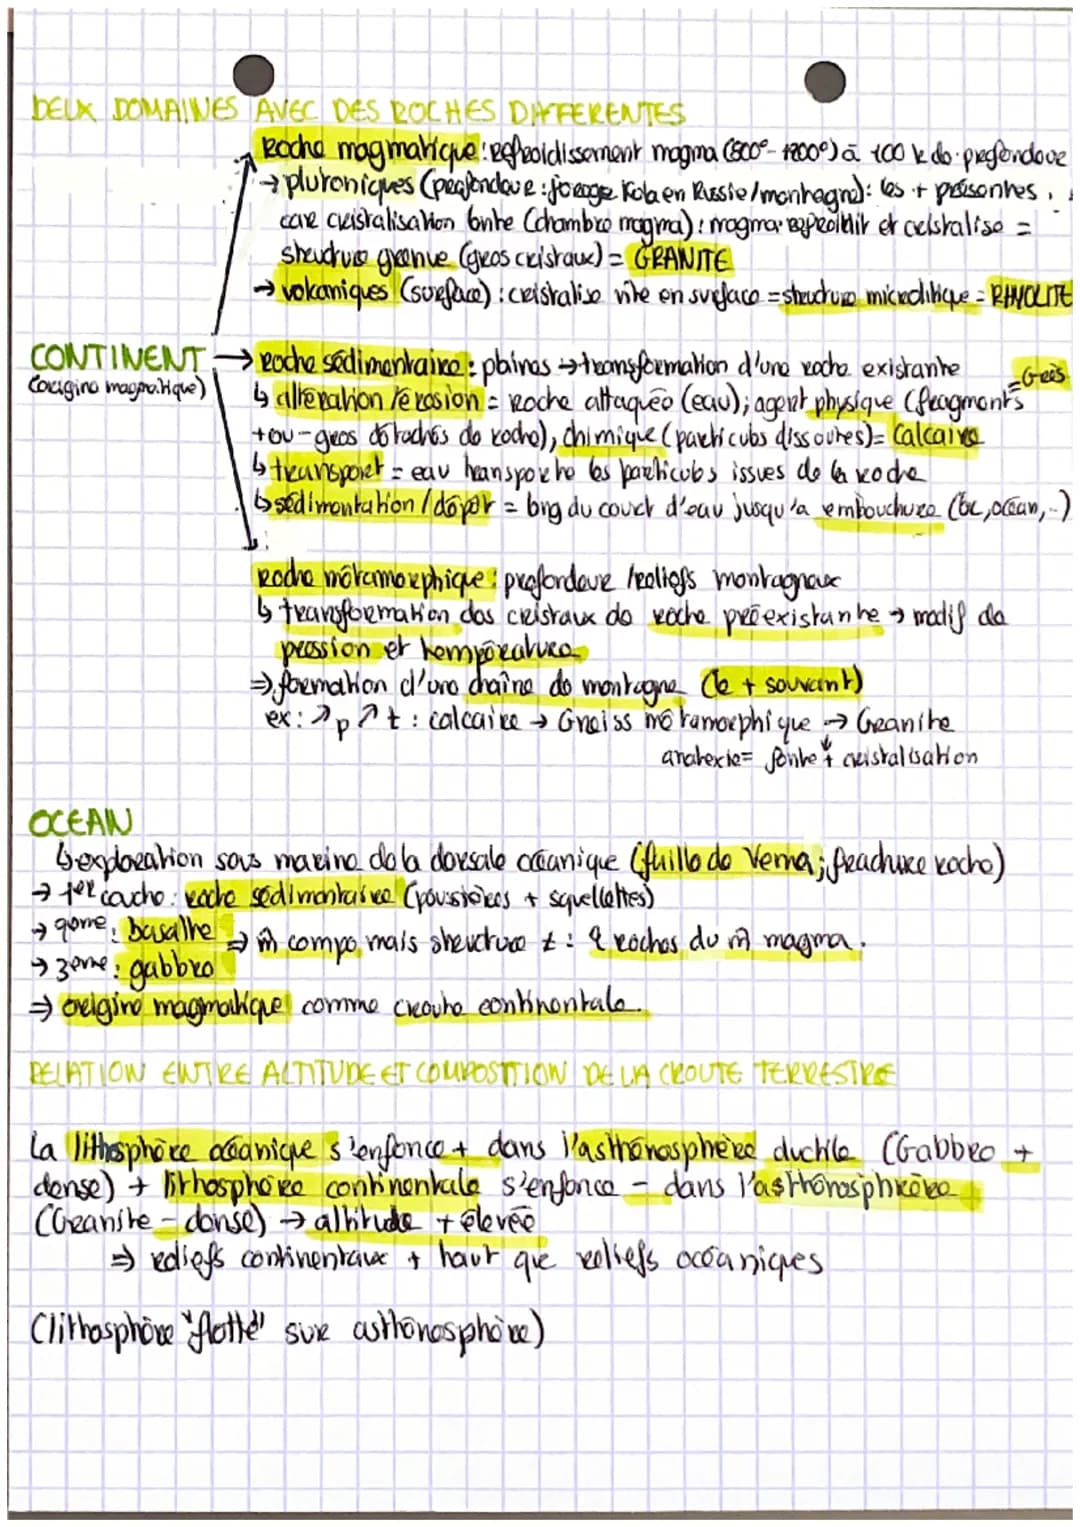 DEUX DOMAINES AVEC DES ROCHES DIFFERENTES
Roche magmatique : refroidissement magma (800° - 1200°) à 100 k de profondeur
→ plutoniques (profondeur : forage Kola en Russie/montagne) : les + présentes,
car cristalisation lente (chambre magma) : magma refroidit et cristalise =
structure grenue (gros cristaux) = GRANITE
→ volcaniques (surface) : cristalise vite en surface = structure microlitique = RHYOLITE
CONTINENT → roche sédimentaire : plaines → transformation d'une roche existante
(origine magmatique)
↳ altération/érosion = roche attaquée (eau) ; agent physique (fragments = Grès
+ ou - gros détachés de roche), chimique (particules dissoutes) = Calcaire
↳ transport = eau transporte les particules issues de la roche
↳ sédimentation / dépôt = long du court d'eau jusqu'a embouchure (lac, océan, ..)
Roche métamorphique : profondeur / reliefs montagneux
↳ transformation des cristaux de roche préexistante → modif de
pression et température
⇒ formation d'une chaîne de montagne (le + souvant)
ex : ↗ p ↗ t : calcaire → Gneiss métamorphique → Granite
anatexie = fonte + cristalisation
OCEAN
↳ exploration sous marine de la dorsale océanique (faille de Vema ; fracture roche)
→ 1er couche : roche sédimentaire (poussières + squellettes)
→ 2ème : basalte ⇒ m̂ compo mais structure ≠ : 2 roches du m̂ magma.
→ 3ème : gabbro
⇒ origine magmatique comme croute continentale.
RELATION ENTRE ALTITUDE ET COMPOSITION DE LA CROUTE TERRESTRE
La lithosphère océanique s'enfonce + dans l'asthénosphère ductile (Gabbro +
dense) + lithosphère continentale s'enfonce - dans l'asthénosphère
(Granite - dense) → altitude + élevée
⇒ reliefs continentaux + haut que reliefs océaniques
(lithosphère "flotte" sur asthénosphère)